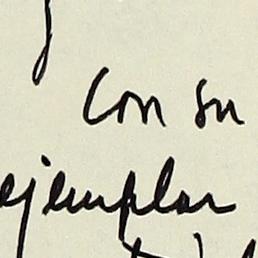 con su
ejemplar